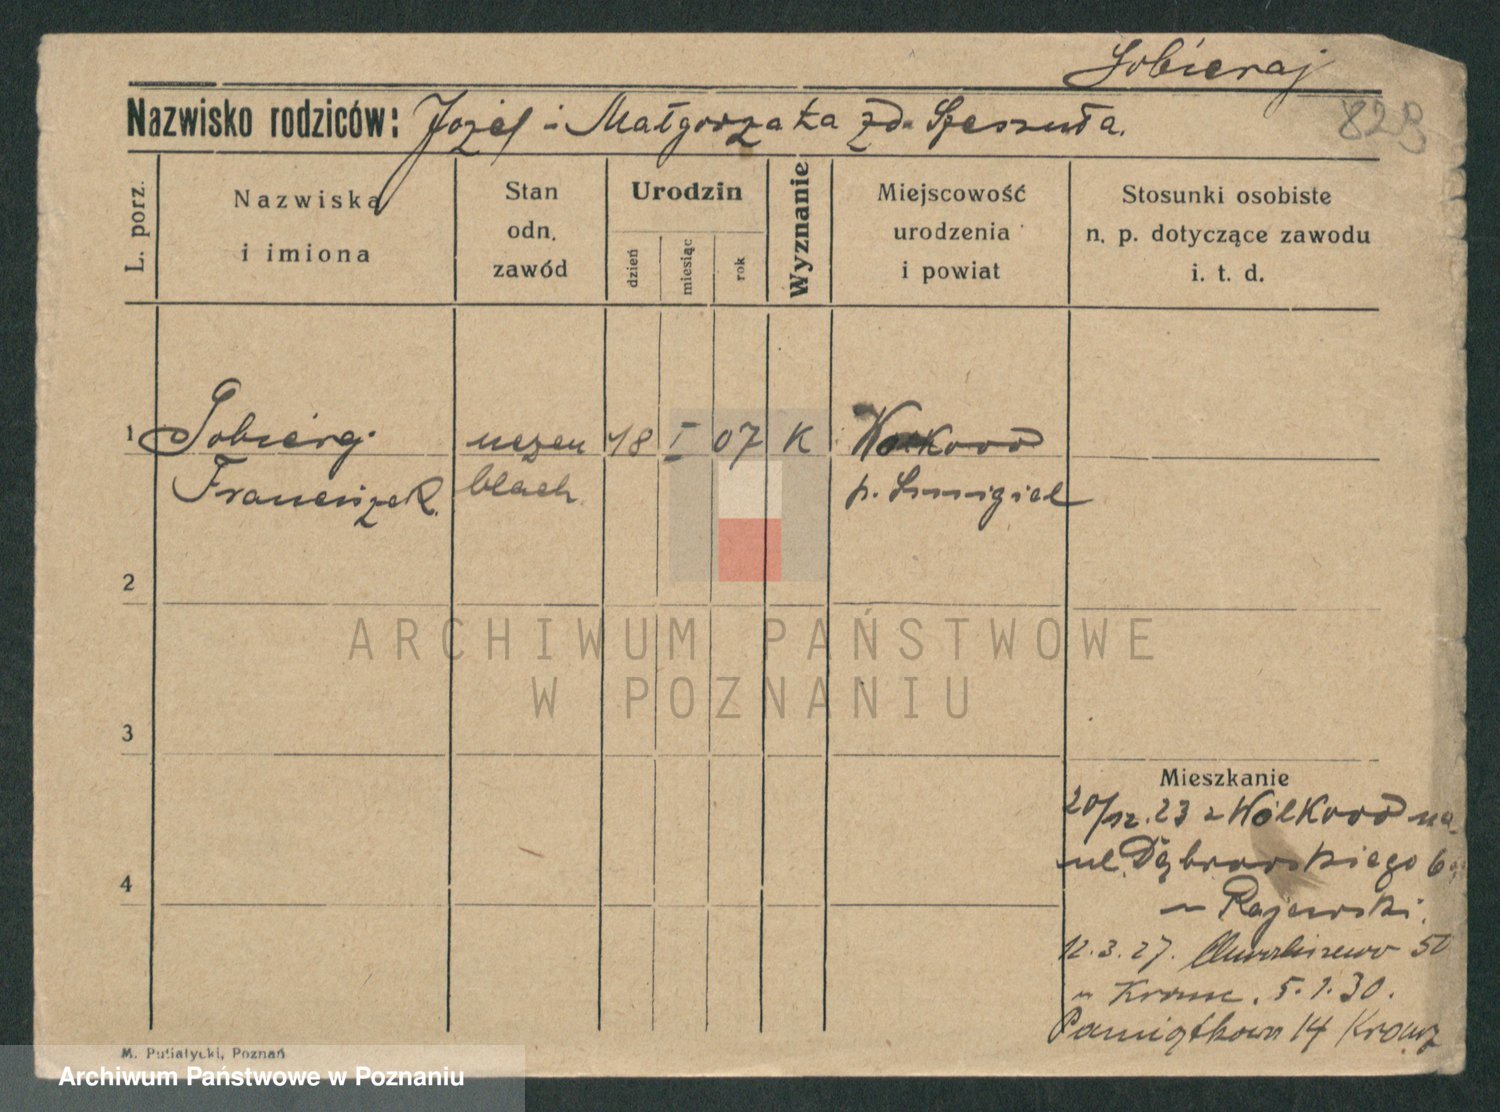 Sobieraj
Nazwisko rodziców: Józef i Małgorzata zd. Szeszuła.
823
L. porz.
Nazwiska
i imiona
Stan
odn.
zawód
Urodzin
dzień
miesiąc
rok
Wyznanie
Miejscowość
urodzenia
i powiat
Stosunki osobiste
n. p. dotyczące zawodu
i. t. d.
1 Sobieraj uczeń 18 I 07 K Wolkowo
Franciszek. blach. p. Śmigiel
2
3
4
Mieszkanie
20/12.23 z Wolkowo na
ul. Dąbrowskiego 6
u Rajewski.
12.3.27. 50
u 5.1.30.
Pamiątkowa 14
M. Putiatycki, Poznań
ARCHIWUM PAŃSTWOWE
W POZNANIU
Archiwum Państwowe w Poznaniu